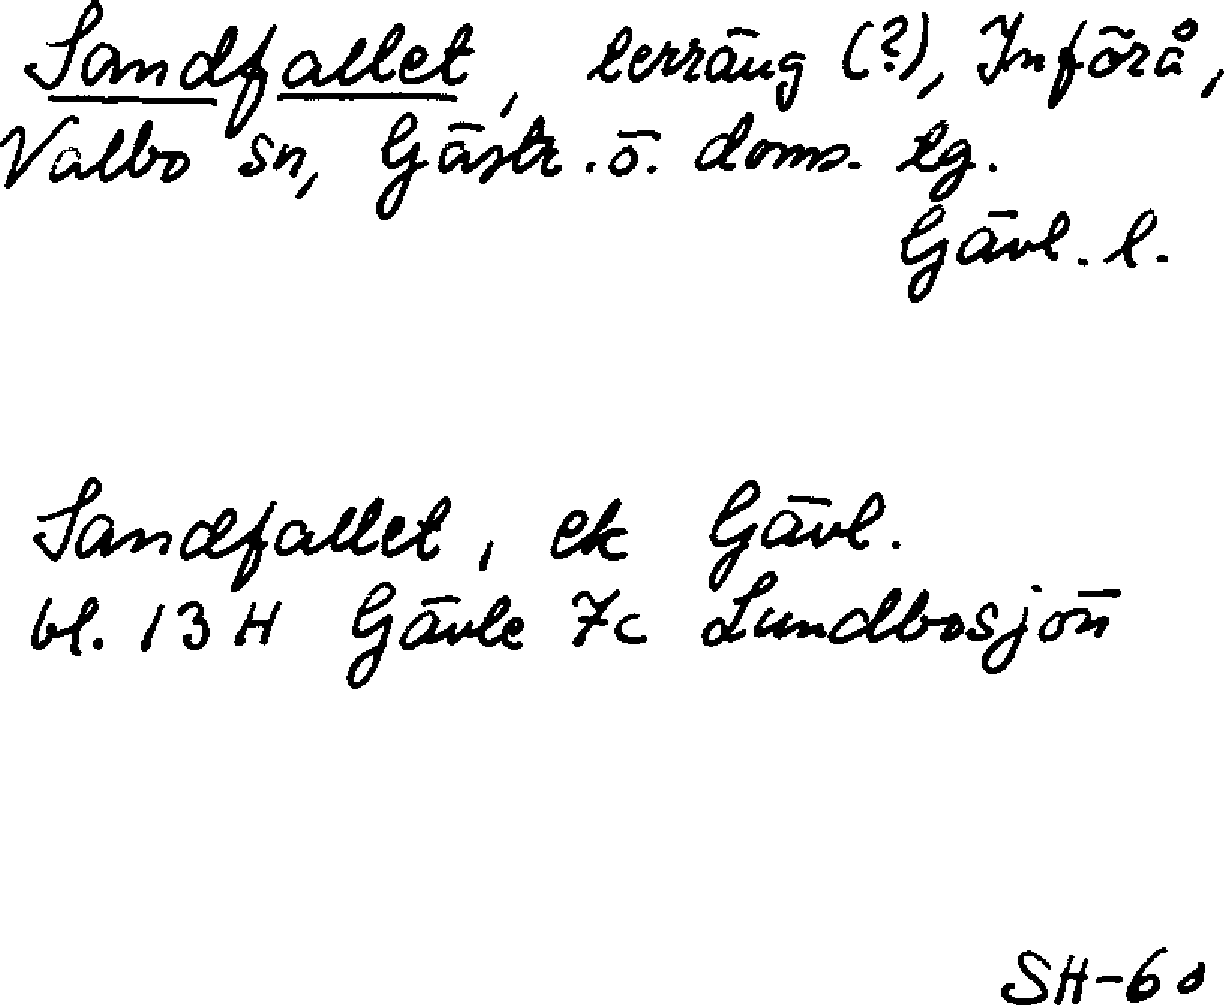 Sandfallet, terräng (?), Införå,
Valbo sn, Gästr. ö. doms. tg.
Gävl. l.
Sandfallet, ek Gävl.
bl. 13 H Gävle 7c Lundbosjön
SH-60